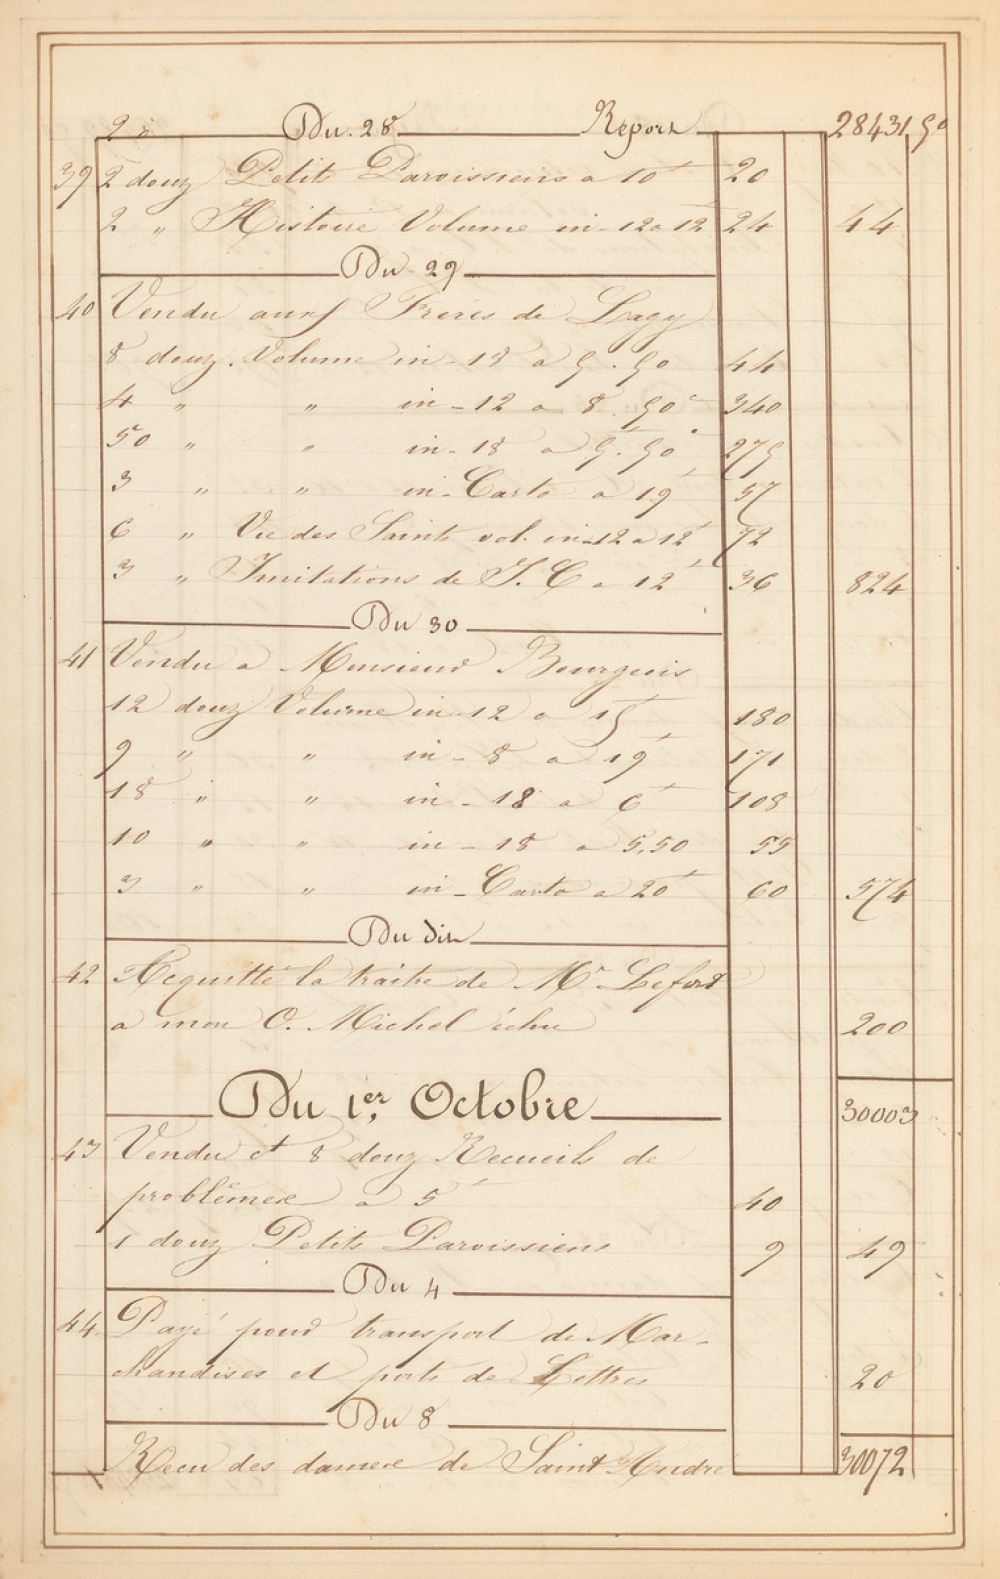 Du 28 Report 28431 50
39 2 douz Petits Paroissiens a 10f 20
2 „ Histoire Volume in-12 a 12 24 44
Du 29
40 Vendu aux Frères de Lagy
8 douz. Volume in-18 a 5.50 44
4 „ „ in-12 a 8.50c 340
50 „ „ in-18 a 5.50c 275
3 „ „ in-Carto a 19f 57
6 „ Vie des Saints vol. in-12 a 12f 72
3 „ Imitations de J. C a 12f 36 824
Du 30
41 Vendu a Monsieur Bourgeois
12 douz Volume in-12 a 15f 180
9 „ „ in-8 a 19f 171
18 „ „ in-18 a 6f 108
10 „ „ in-18 a 5.50 55
3 „ „ in-Carto a 20f 60 574
Du dit
42 Acquitté la traite de Mr Lefort
a mon O. Michel échu 200
Du 1er, Octobre 30003
43 Vendu et 8 douz Recueils de
problêmes a 5f 40
1 douz Petits Paroissiens 9 49
Du 4
44 Payé pour transport de Mar-
chandises et ports de Lettres 20
Du 8
Recu des dames de Saint André 30072